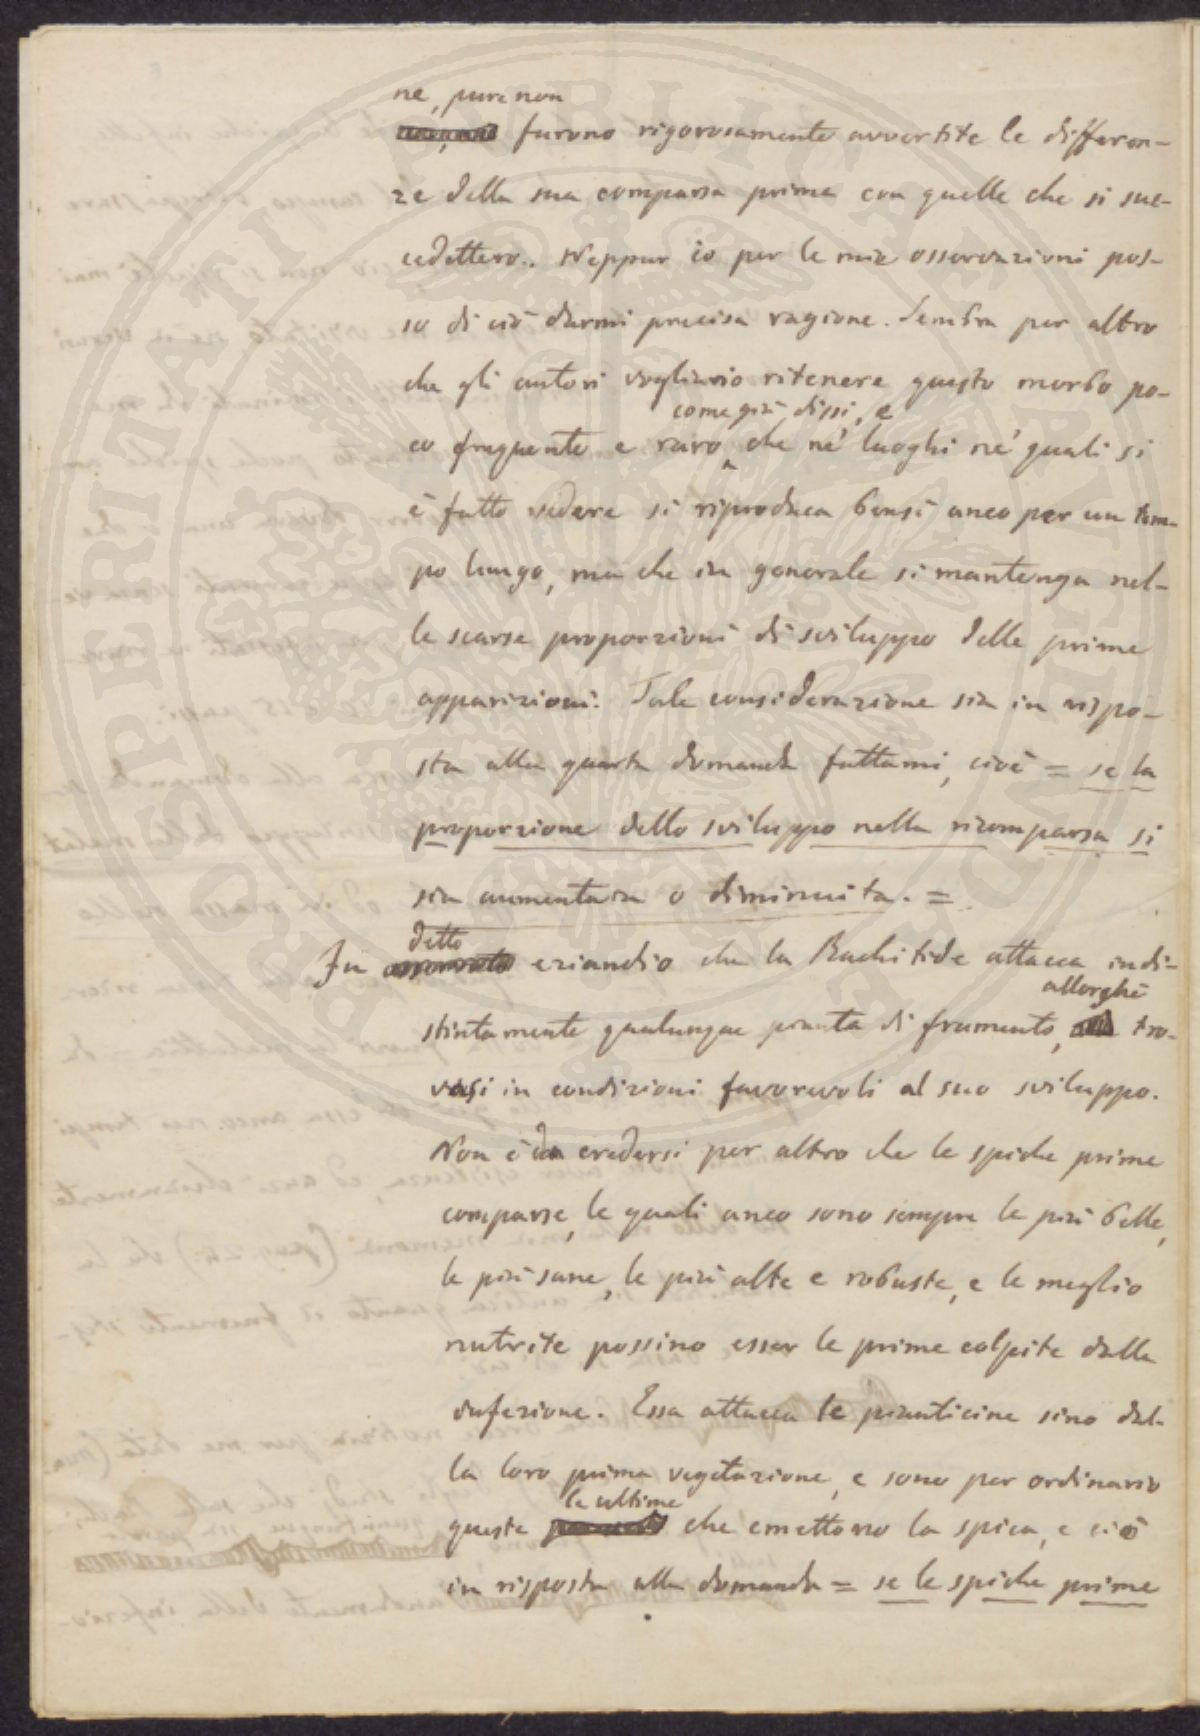 ne, pure non
furono rigorosamente avvertite le differen-
ze della sua comparsa prima con quelle che si suc-
cedettero. Neppur io per le mie osservazioni pos-
so di ciò darmi precisa ragione. Sembra per altro
che gli autori vogliano ritenere questo morbo po-
come già dissi, e
co frequente e raro, che ne' luoghi ne' quali si
è fatto vedere si riproduca bensì anco per un tem-
po lungo, ma che in generale si mantenga nel-
le scarse proporzioni di sviluppo delle prime
apparizioni. Tale considerazione sia in rispo-
sta alla quarta domanda fattami, cioè = se la
proporzione dello sviluppo nella ricomparsa si
sia aumentata o diminuita. =
detto
Fu eziandio che la Rachitide attacca indi-
allorghè
stintamente qualunque pianta di frumento, tro-
vasi in condizioni favorevoli al suo sviluppo.
Non è da credersi per altro che le spiche prime
comparse, le quali anco sono sempre le più belle,
le più sane, le più alte e robuste, e le meglio
nutrite possino esser le prime colpite dalla
infezione. Essa attacca le pianticine sino dal-
la loro prima vegetazione, e sono per ordinario
le ultime
queste che emettono la spica, e ciò
in risposta alla domanda = se le spiche prime
PROSPERITATI PUBLICAE AUGENDAE